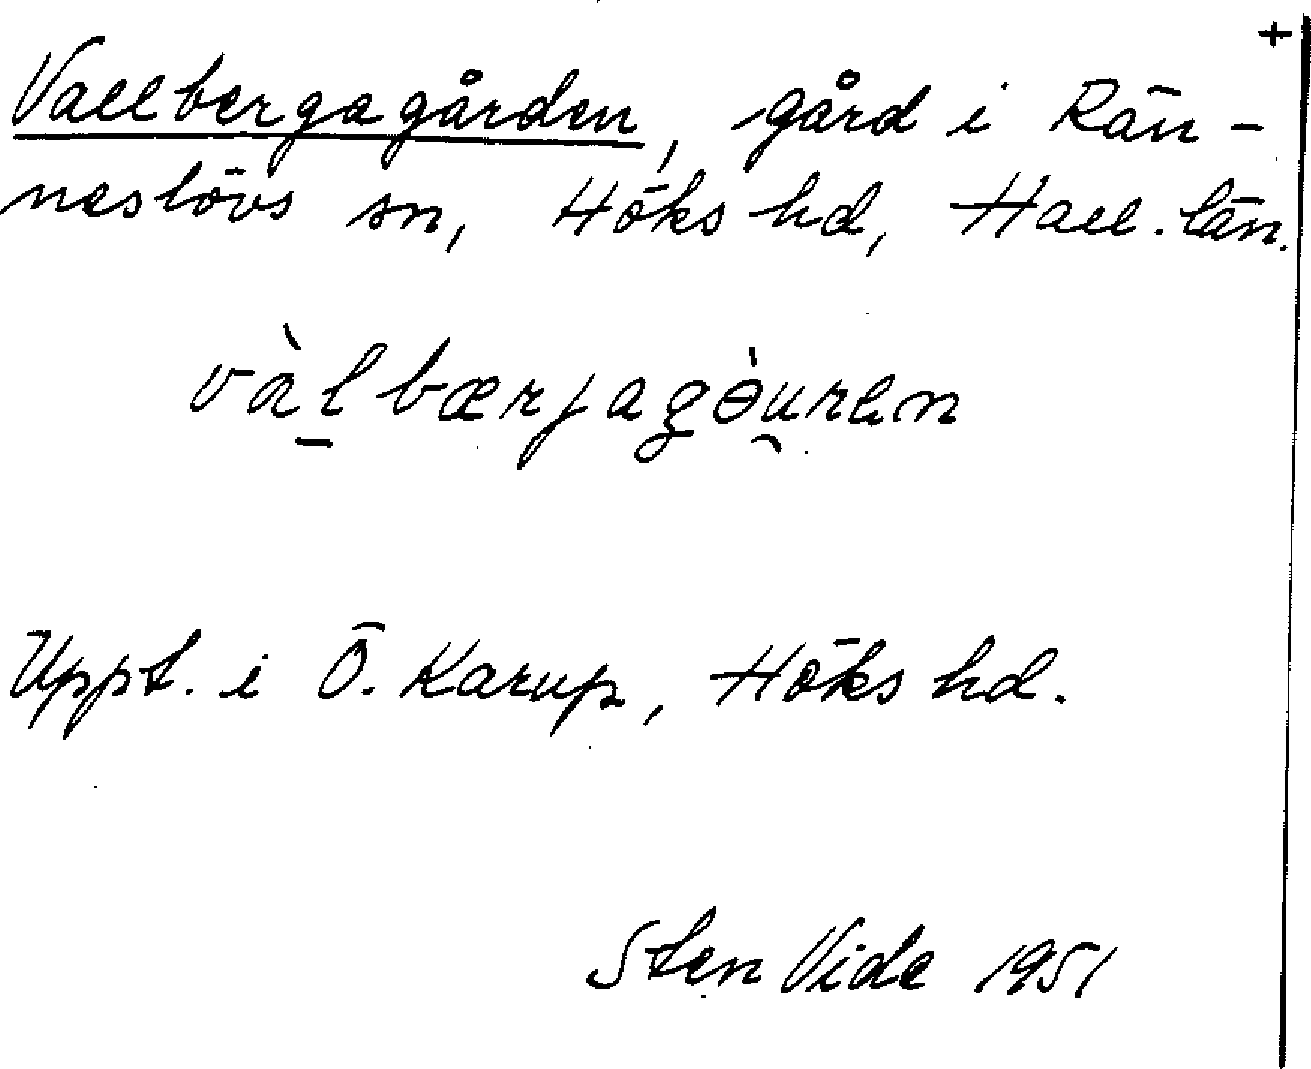 +
Vallbergagården, gård i Rän-
neslövs sn, Höks hd, Hall. län.
vàl̠bærjagѳ̀u̯ren
Uppt. i Ö. Karup, Höks hd.
Sten Vide 1951